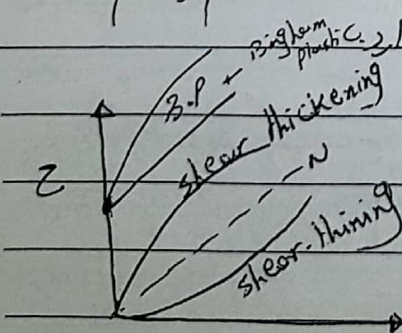 Bingham
plastic. B.P
B.P
shear thickening
τ
N
shear. thining